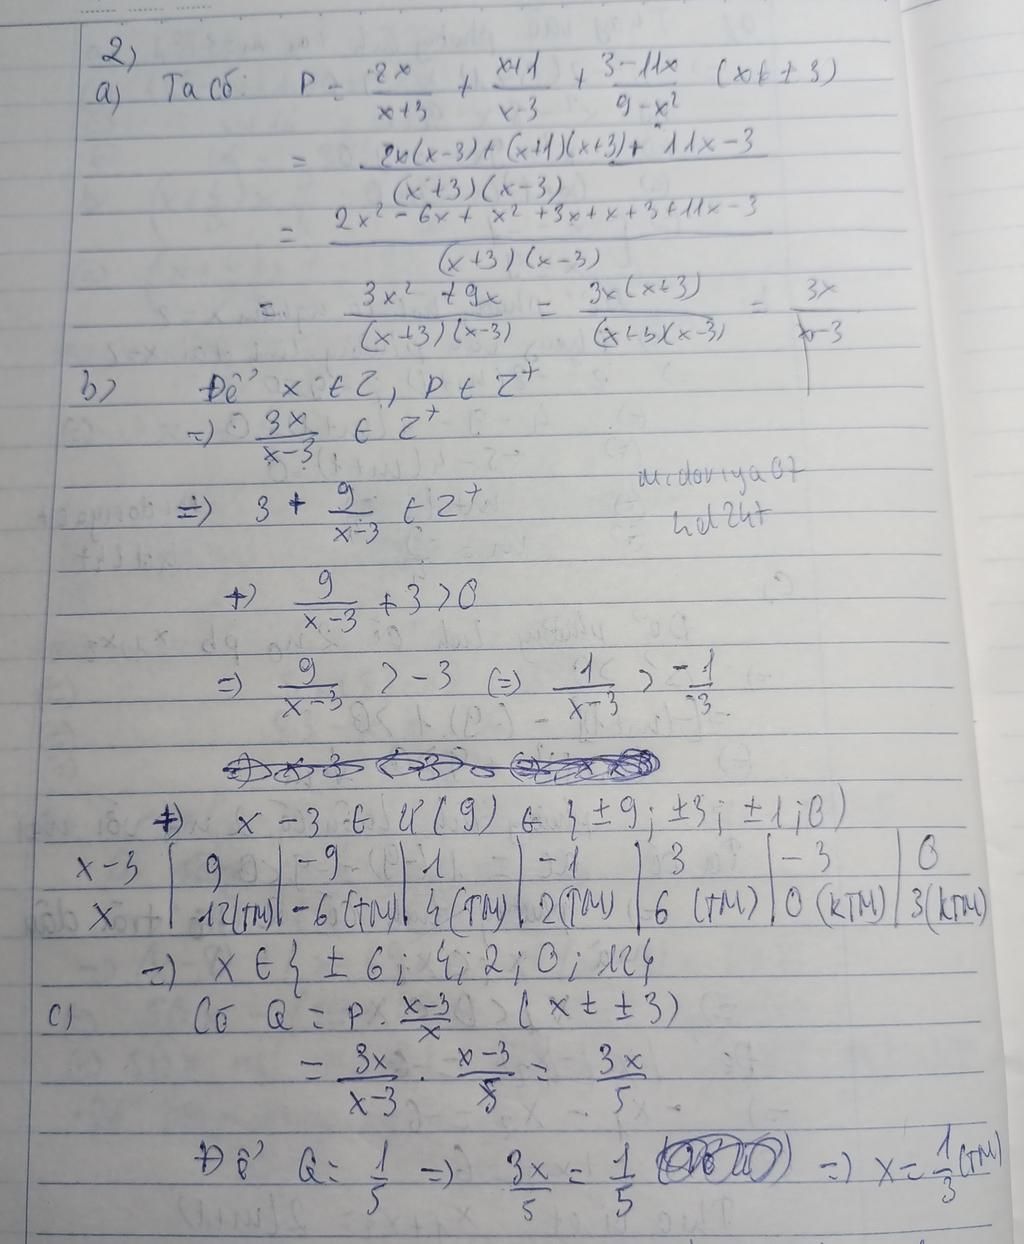 2)
a) Ta có: P = 2x/(x+3) + (x+1)/(x-3) + (3-11x)/(9-x²) (x ≠ ±3)
= (2x(x-3) + (x+1)(x+3) + 11x-3)/((x+3)(x-3))
= (2x² - 6x + x² + 3x + x + 3 + 11x - 3)/((x+3)(x-3))
= (3x² + 9x)/((x+3)(x-3)) = 3x(x+3)/((x+3)(x-3)) = 3x/(x-3)
b) Để x ∈ Z, P ∈ Z⁺
=) 3x/(x-3) ∈ Z⁺
midoriya07
=) 3 + 9/(x-3) ∈ Z⁺
hd247
+) 9/(x-3) + 3 > 0
=) 9/(x-3) > -3 (=) 1/(x-3) > -1/3
+) x - 3 ∈ Ư(9) ∈ { ±9; ±3; ±1; 0)
x-3 | 9 | -9 | 1 | -1 | 3 | -3 | 0
x | 12(TM) | -6(TM) | 4(TM) | 2(TM) | 6(TM) | 0(KTM) | 3(KTM)
=) x ∈ { ±6; 4; 2; 0; 12}
c) Có Q = P. (x-3)/x (x ≠ ±3)
= 3x/(x-3) . (x-3)/5 = 3x/5
Để Q = 1/5 =) 3x/5 = 1/5 =) x = 1/3 (TM)